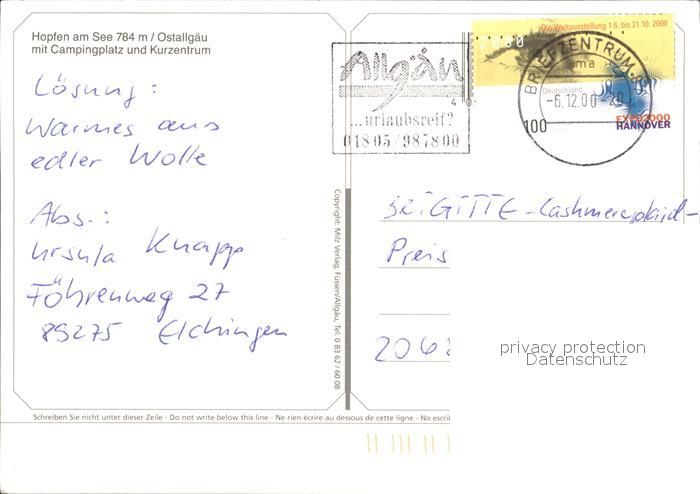 Hopfen am See 784 m / Ostallgäu
mit Campingplatz und Kurzentrum
Lösung:
Warmes aus
edler Wolle
Abs.:
Ursula Knapp
Föhrenweg 27
89275 Elchingen
Copyright: Milz Verlag, Füssen/Allgäu, Tel. 0 83 62 / 60 08
Allgäu
...urlaubsreif?
01805/987800
Die Weltausstellung 1.6. bis 31.10. 2000
Deutschland
EXPO2000
HANNOVER
BRIEFZENTRUM
-6.12.00-20
100
BRIGITTE-Cashmereplaid-
Preis
2062
privacy protection
Datenschutz
Schreiben Sie nicht unter dieser Zeile - Do not write below this line - Ne rien écrire au dessous de cette ligne - No escrib